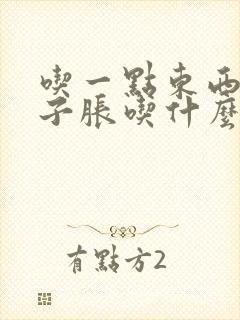 喫一點東西
子脹喫什麼
有點方2